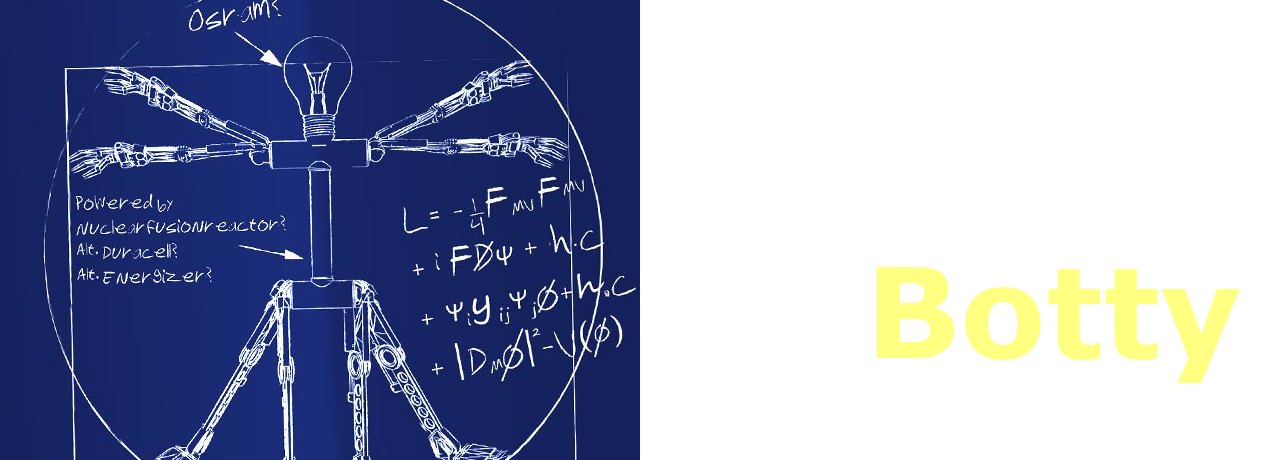 Osram?
Powered by
Nuclearfusionreactor?
Alt. Duracell?
Alt. Energizer?
L = - 1/4 F MV F MV
+ i F D̸ ψ + h.c
+ ψ i y ij ψ j Ø + h.c
+ |D M Ø|² - V(Ø)
Botty